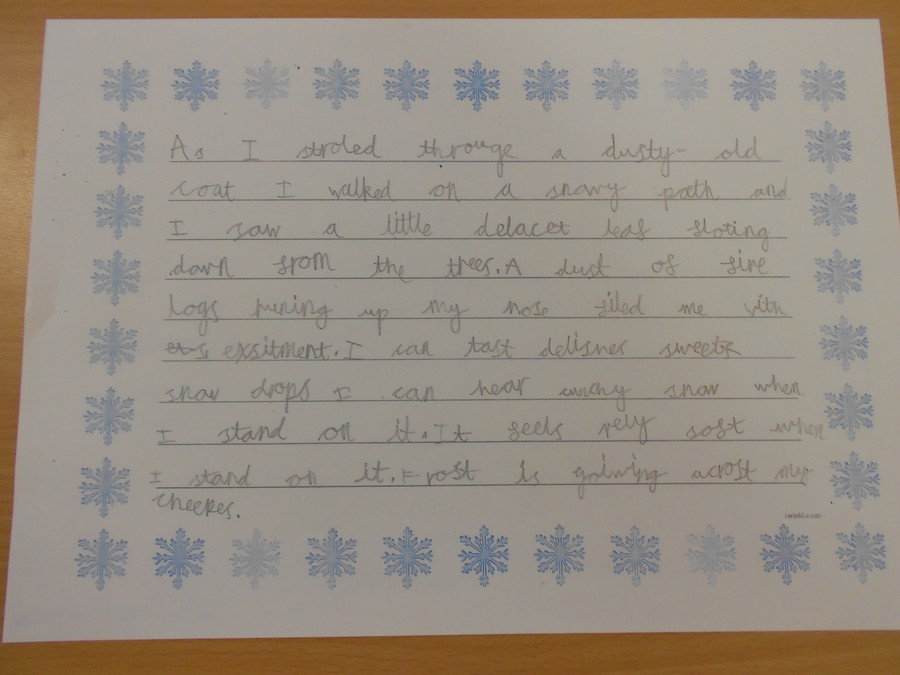 As I stroled througe a dusty old
coat I walked on a snowy path and
I saw a little delacet leaf floting
down from the trees. A dust of fire
logs runing up my nose filed me with
exsitment. I can tast delisner sweet
snow drops I can hear cruchy snow when
I stand on it. It feels rely soft when
I stand on it. Frost is goiwing acrost my
cheekes.